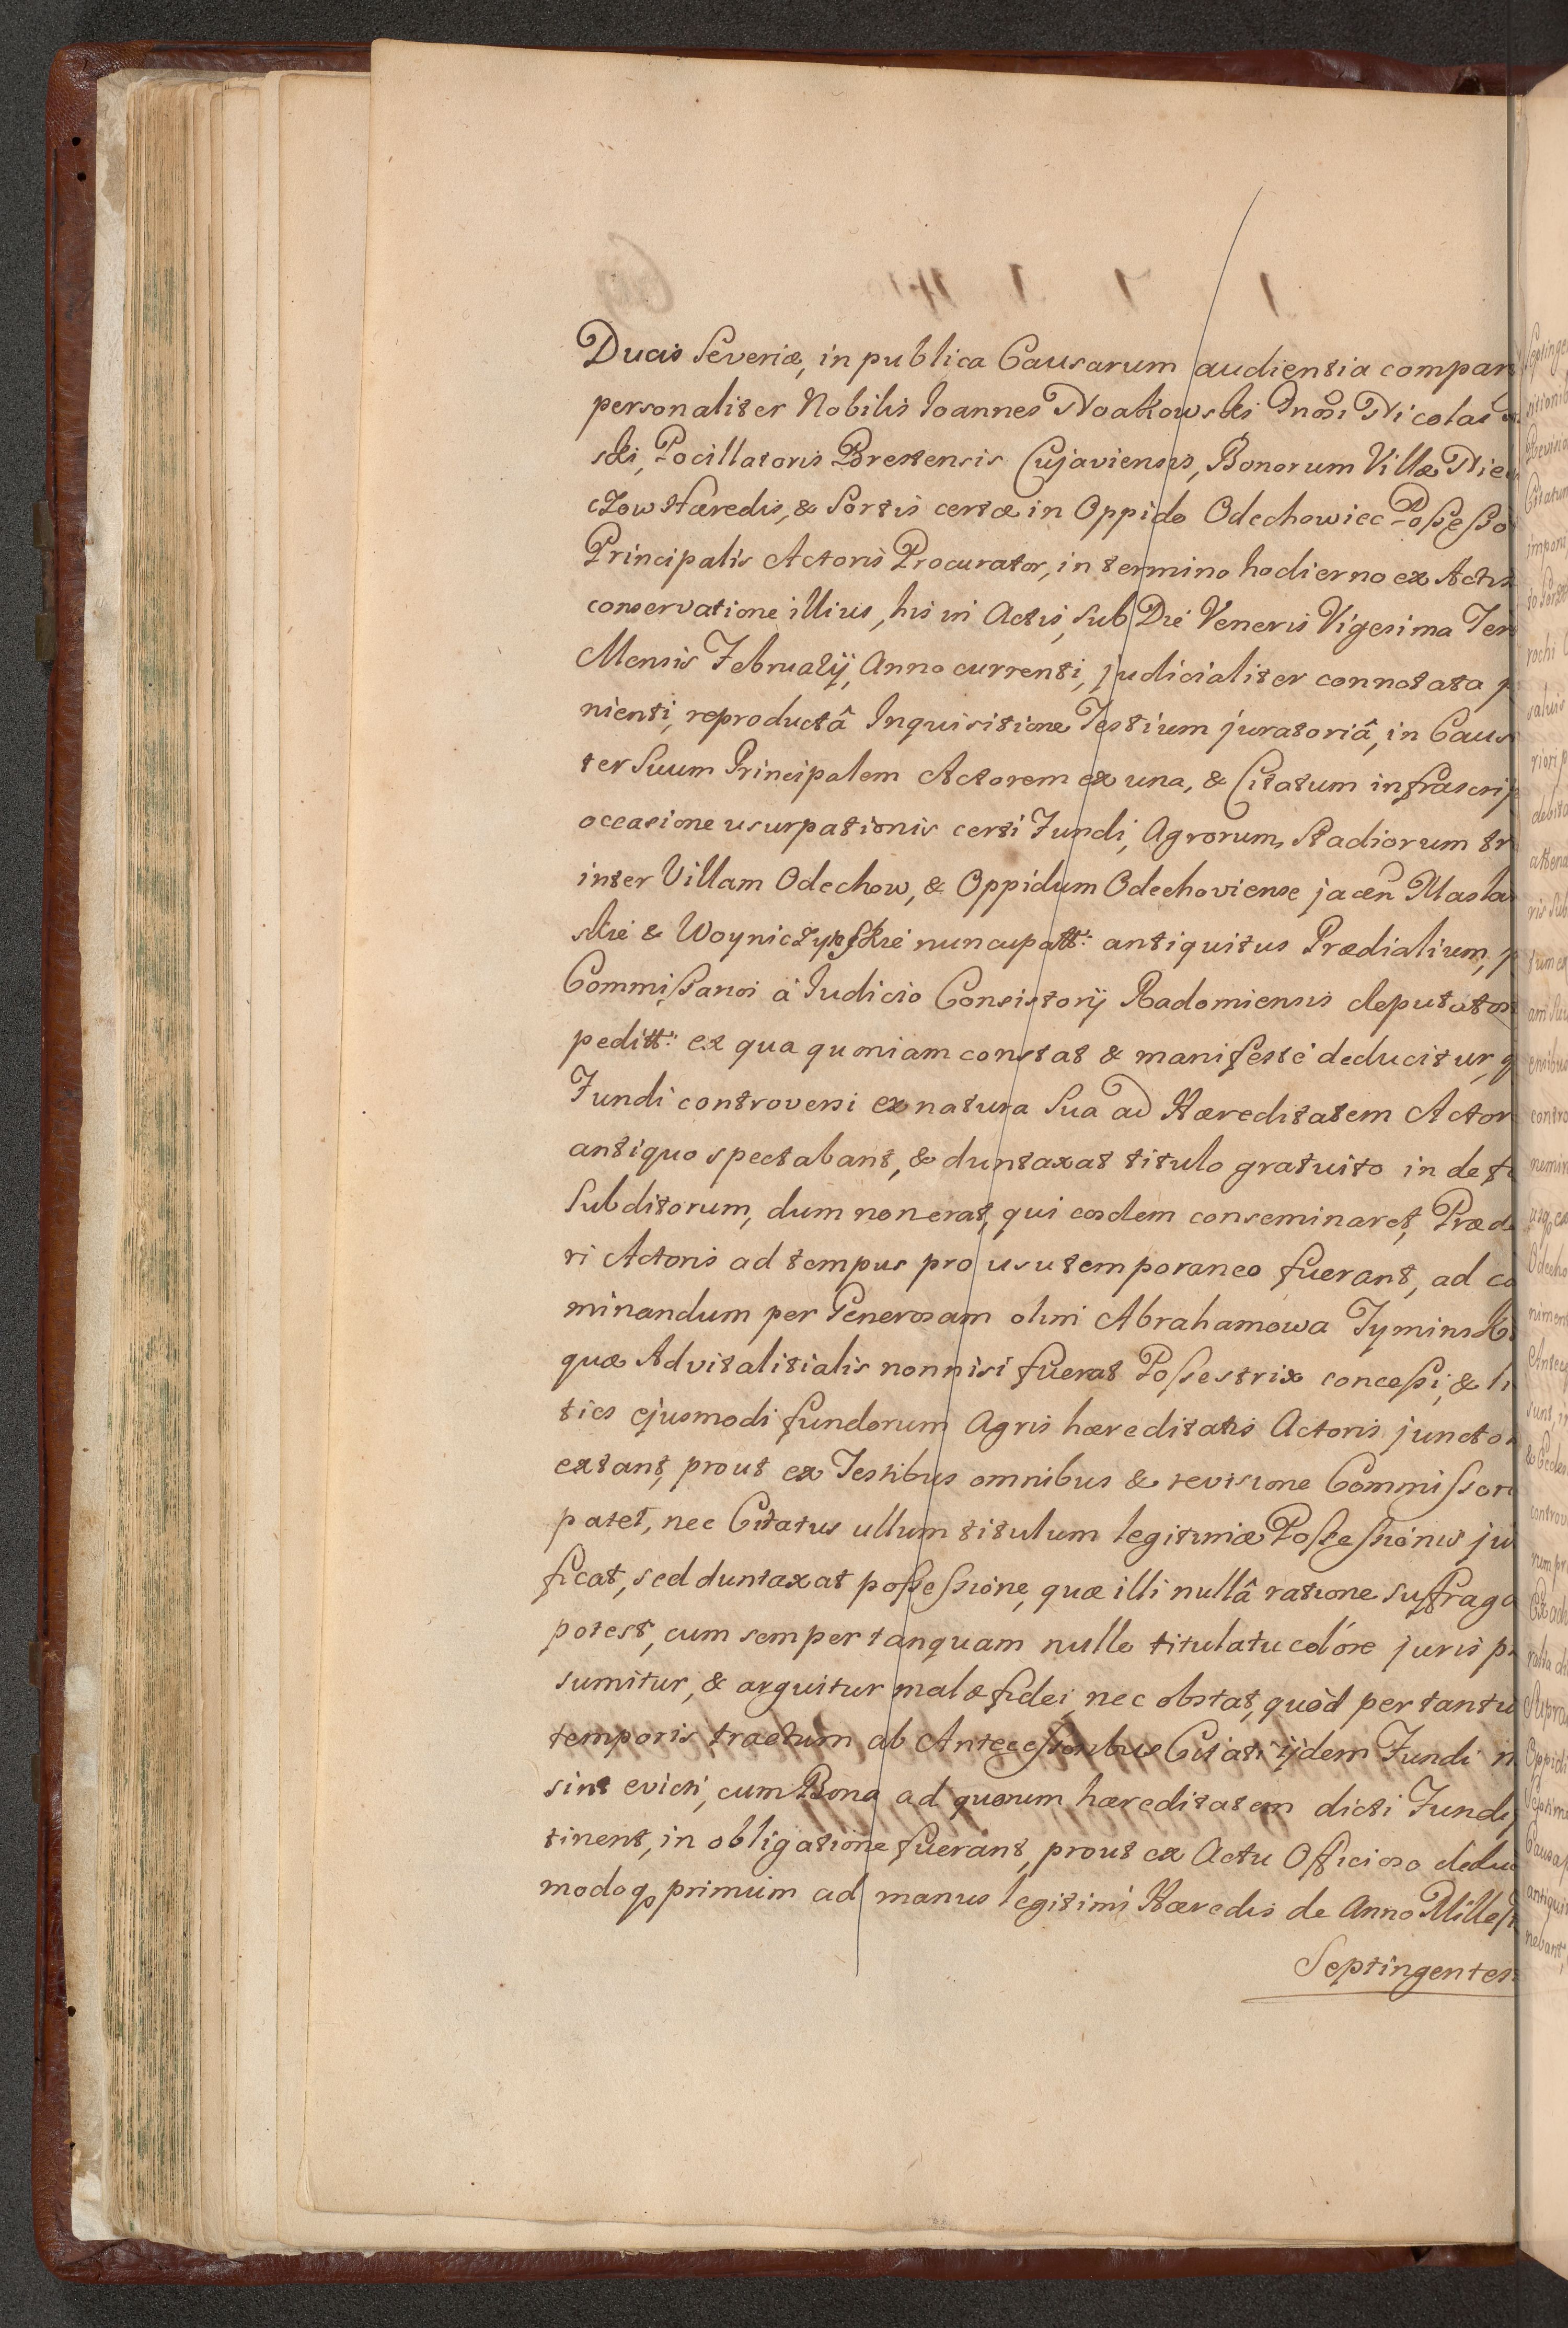 Ducis Severiæ, in publica Causarum audientia compar
personaliter Nobilis Ioannes Noakowski Gnosi Nicolai
ski, Pocillatoris Brestensis Cujaviensis, Bonorum Villæ Nie
czow Hæredis, & Sortis certæ in Oppido Odechowiec Possesso
Principalis Actoris Procurator, in termino hodierno ex Actis
conservatione illius, his in Actis, sub Die Veneris Vigesima Ter
Mensis Februarij, Anno currenti, judicialiter connotata p
nienti, reproductâ Inquisitione Testium juratoriâ, in Caus
ter Suum Principalem Actorem ex una, & Citatum infrascrip
occasione usurpationis certi Fundi, Agrorum, Stadiorum tr
inter Villam Odechow, & Oppidum Odechoviense jacen Masla
skie & nuncupatt: antiquitus Prædialium, p
Commissarios à Iudicio Consistorij Radomiensis deputator
peditt: ex qua quoniam constat & manifestè deducitur, q
Fundi controversi ex natura Sua ad Hæreditatem Actor
antiquo spectabant, & duntaxat titulo gratuito in defe
Subditorum, dum non erat, qui eosdem conseminaret, Præd
ri Actoris ad tempus pro usu temporaneo fuerant, ad co
minandum per Generosam olim Abrahamowa Tyminski
quæ Advitalitialis nonnisi fuerat Possestrix concessi, & li
ties ejusmodi fundorum Agris hæreditatis Actoris junctor
extant, prout ex Testibus omnibus & revisione Commissor
patet, nec Citatus ullum titulum legitimæ Possessionis ju
ficat, sed duntaxat possessione, quæ illi nullâ ratione suffraga
potest, cum semper tanquam nullo titulatu colóre juris pr
sumitur, & arguitur malæ fidei, nec obstat, quòd per tantu
temporis tractum ab Antecessoribus Citati ijdem Fundi n
sint evicti, cum Bona ad quorum hæreditatem dicti Fundi
tinent, in obligatione fuerant, prout ex Actu Officioso deduc
modoq3 primùm ad manus legitimi Hæredis de Anno Millesi
Septingentes